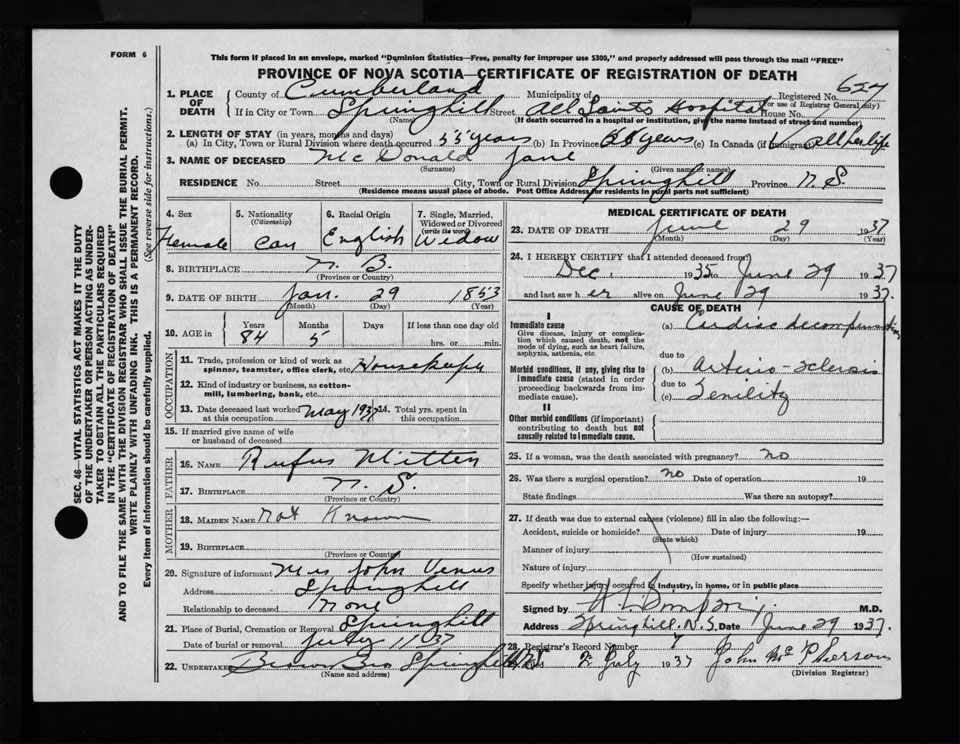 FORM 6
This form if placed in an envelope, marked "Dominion Statistics—Free, penalty for improper use $300," and properly addressed will pass through the mail "FREE"
PROVINCE OF NOVA SCOTIA—CERTIFICATE OF REGISTRATION OF DEATH
SEC. 46—VITAL STATISTICS ACT MAKES IT THE DUTY
OF THE UNDERTAKER OR PERSON ACTING AS UNDER-
TAKER TO OBTAIN ALL THE PARTICULARS REQUIRED
IN THE "CERTIFICATE OF REGISTRATION OF DEATH"
AND TO FILE THE SAME WITH THE DIVISION REGISTRAR WHO SHALL ISSUE THE BURIAL PERMIT.
WRITE PLAINLY WITH UNFADING INK. THIS IS A PERMANENT RECORD.
Every item of information should be carefully supplied. (See reverse side for instructions.)
1. PLACE OF DEATH County of Cumberland Municipality of Registered No. 627
(For use of Registrar General only)
If in City or Town Springhill Street All Saints Hospital House No.
(Name) (If death occurred in a hospital or institution, give the name instead of street and number)
2. LENGTH OF STAY (in years, months and days)
(a) In City, Town or Rural Division where death occurred 55 years (b) In Province years (c) In Canada (if immigrant) all her life
3. NAME OF DECEASED McDonald Jane
(Surname) (Given name or names)
RESIDENCE No. Street City, Town or Rural Division Springhill Province N.S.
(Residence means usual place of abode. Post Office Address for residents in rural parts not sufficient)
4. Sex Female
5. Nationality (Citizenship) Can
6. Racial Origin English
7. Single, Married, Widowed or Divorced (write the word) Widow
8. BIRTHPLACE N. B.
(Province or Country)
9. DATE OF BIRTH Jan. 29 1853
(Month) (Day) (Year)
10. AGE in Years 84 Months 5 Days If less than one day old hrs. or min.
OCCUPATION
11. Trade, profession or kind of work as spinner, teamster, office clerk, etc. Housekeeper
12. Kind of industry or business, as cotton-mill, lumbering, bank, etc.
13. Date deceased last worked at this occupation May 1937 14. Total yrs. spent in this occupation
15. If married give name of wife or husband of deceased
FATHER
16. NAME Rufus Mitten
17. BIRTHPLACE N. S.
(Province or Country)
MOTHER
18. MAIDEN NAME Not Known
19. BIRTHPLACE
(Province or Country)
20. Signature of informant Mrs John Venus
Address Springhill
Relationship to deceased None
21. Place of Burial, Cremation or Removal Springhill
Date of burial or removal July 1 1937
22. UNDERTAKER Brown Bro Springhill N.S.
(Name and address)
MEDICAL CERTIFICATE OF DEATH
23. DATE OF DEATH June 29 1937
(Month) (Day) (Year)
24. I HEREBY CERTIFY that I attended deceased from:
Dec, 1935 to June 29 1937
and last saw her alive on June 29 1937.
CAUSE OF DEATH
I
Immediate cause
Give disease, injury or complication which caused death, not the mode of dying, such as heart failure, asphyxia, asthenia, etc.
(a) Cardiac decompensation
due to
Morbid conditions, if any, giving rise to immediate cause (stated in order proceeding backwards from immediate cause).
(b) Arterio-sclerosis
due to
(c) Senility
II
Other morbid conditions (if important) contributing to death but not causally related to immediate cause.
25. If a woman, was the death associated with pregnancy? no
26. Was there a surgical operation? no Date of operation 19
State findings Was there an autopsy?
27. If death was due to external causes (violence) fill in also the following:—
Accident, suicide or homicide? Date of injury 19
(State which)
Manner of injury
(How sustained)
Nature of injury
Specify whether injury occurred in industry, in home, or in public place
Signed by M.D.
Address Springhill. N.S. Date June 29 1937.
28. Registrar's Record Number 7
Filed 2 July 1937 John McPherson
(Division Registrar)